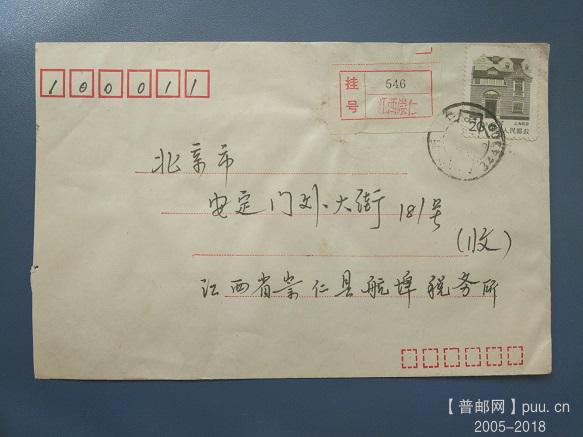 100011
挂号 546
江西崇仁
20
中国人民邮政
北京市
安定门外大街181号
(收)
江西省崇仁县航埠税务所
【普邮网】puu.cn
2005-2018